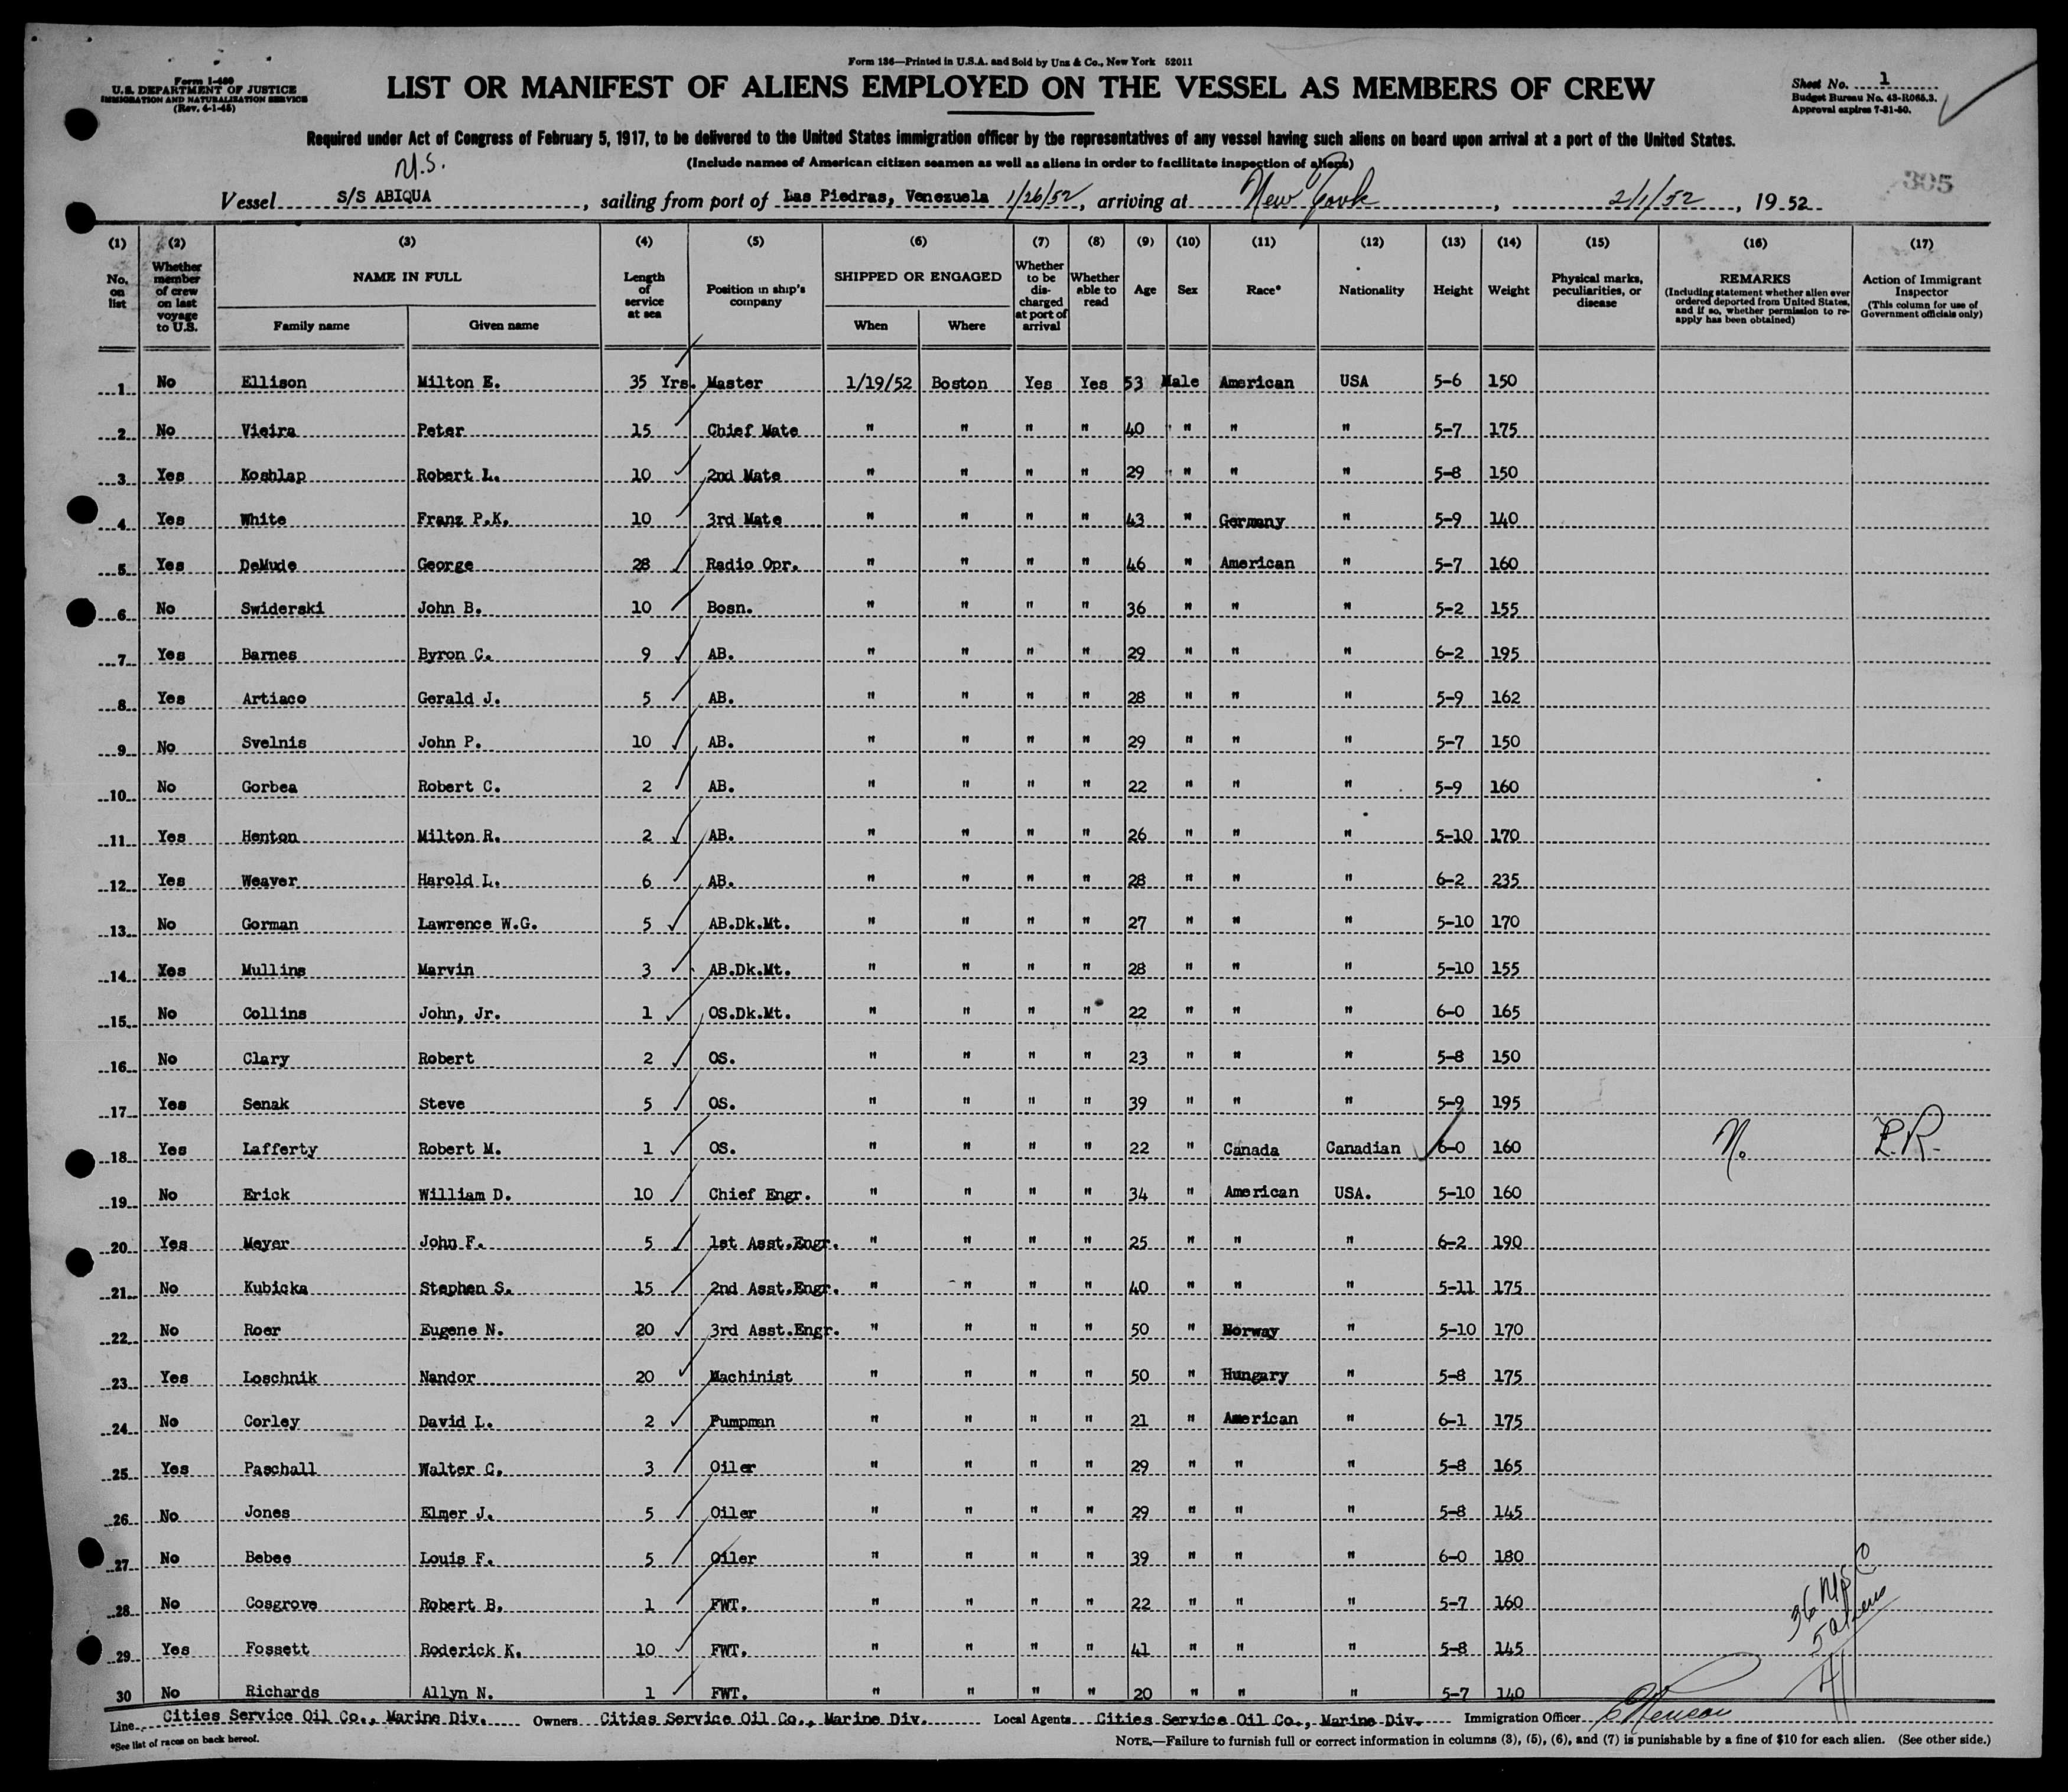 Form 136—Printed in U.S.A. and Sold by Unz & Co., New York 52011
Form I-480
U.S. DEPARTMENT OF JUSTICE
IMMIGRATION AND NATURALIZATION SERVICE
(Rev. 4-1-45)
LIST OR MANIFEST OF ALIENS EMPLOYED ON THE VESSEL AS MEMBERS OF CREW
Sheet No. 1
Budget Bureau No. 43-R065.3.
Approval expires 7-31-50.
Required under Act of Congress of February 5, 1917, to be delivered to the United States immigration officer by the representatives of any vessel having such aliens on board upon arrival at a port of the United States.
(Include names of American citizen seamen as well as aliens in order to facilitate inspection of aliens)
U.S.
305
Vessel S/S ABIQUA, sailing from port of Las Piedras, Venezuela 1/26/52, arriving at New York, 2/1/52, 19 52
(1) (2) (3) (4) (5) (6) (7) (8) (9) (10) (11) (12) (13) (14) (15) (16) (17)
No. on list
Whether member of crew on last voyage to U.S.
NAME IN FULL
Family name Given name
Length of service at sea
Position in ship's company
SHIPPED OR ENGAGED
When Where
Whether to be discharged at port of arrival
Whether able to read
Age
Sex
Race*
Nationality
Height
Weight
Physical marks, peculiarities, or disease
REMARKS
(Including statement whether alien ever ordered deported from United States, and if so, whether permission to re-apply has been obtained)
Action of Immigrant Inspector
(This column for use of Government officials only)
1 No Ellison Milton E. 35 Yrs. Master 1/19/52 Boston Yes Yes 53 Male American USA 5-6 150
2 No Vieira Peter 15 Chief Mate " " " " 40 " " " 5-7 175
3 Yes Koshlap Robert L. 10 2nd Mate " " " " 29 " " " 5-8 150
4 Yes White Franz P.K. 10 3rd Mate " " " " 43 " Germany " 5-9 140
5 Yes DeMude George 28 Radio Opr. " " " " 46 " American " 5-7 160
6 No Swiderski John B. 10 Bosn. " " " " 36 " " " 5-2 155
7 Yes Barnes Byron C. 9 AB. " " " " 29 " " " 6-2 195
8 Yes Artiaco Gerald J. 5 AB. " " " " 28 " " " 5-9 162
9 No Svelnis John P. 10 AB. " " " " 29 " " " 5-7 150
10 No Gorbea Robert C. 2 AB. " " " " 22 " " " 5-9 160
11 Yes Henton Milton R. 2 AB. " " " " 26 " " " 5-10 170
12 Yes Weaver Harold L. 6 AB. " " " " 28 " " " 6-2 235
13 No Gorman Lawrence W.G. 5 AB.Dk.Mt. " " " " 27 " " " 5-10 170
14 Yes Mullins Marvin 3 AB.Dk.Mt. " " " " 28 " " " 5-10 155
15 No Collins John, Jr. 1 OS.Dk.Mt. " " " " 22 " " " 6-0 165
16 No Clary Robert 2 OS. " " " " 23 " " " 5-8 150
17 Yes Senak Steve 5 OS. " " " " 39 " " " 5-9 195
18 Yes Lafferty Robert M. 1 OS. " " " " 22 " Canada Canadian 6-0 160 No
19 No Erick William D. 10 Chief Engr. " " " " 34 " American USA. 5-10 160
20 Yes Meyer John F. 5 1st Asst.Engr. " " " " 25 " " " 6-2 190
21 No Kubicka Stephen S. 15 2nd Asst.Engr. " " " " 40 " " " 5-11 175
22 No Roer Eugene N. 20 3rd Asst.Engr. " " " " 50 " Norway " 5-10 170
23 Yes Loschnik Nandor 20 Machinist " " " " 50 " Hungary " 5-8 175
24 No Corley David L. 2 Pumpman " " " " 21 " American " 6-1 175
25 Yes Paschall Walter C. 3 Oiler " " " " 29 " " " 5-8 165
26 No Jones Elmer J. 5 Oiler " " " " 29 " " " 5-8 145
27 No Bebee Louis F. 5 Oiler " " " " 39 " " " 6-0 180
28 No Cosgrove Robert B. 1 FWT. " " " " 22 " " " 5-7 160
29 Yes Fossett Roderick K. 10 FWT. " " " " 41 " " " 5-8 145
30 No Richards Allyn N. 1 FWT. " " " " 20 " " " 5-7 140
36 USC
5 aliens
41
Line Cities Service Oil Co., Marine Div. Owners Cities Service Oil Co., Marine Div. Local Agents Cities Service Oil Co., Marine Div. Immigration Officer
*See list of races on back hereof.
NOTE.—Failure to furnish full or correct information in columns (3), (5), (6), and (7) is punishable by a fine of $10 for each alien. (See other side.)